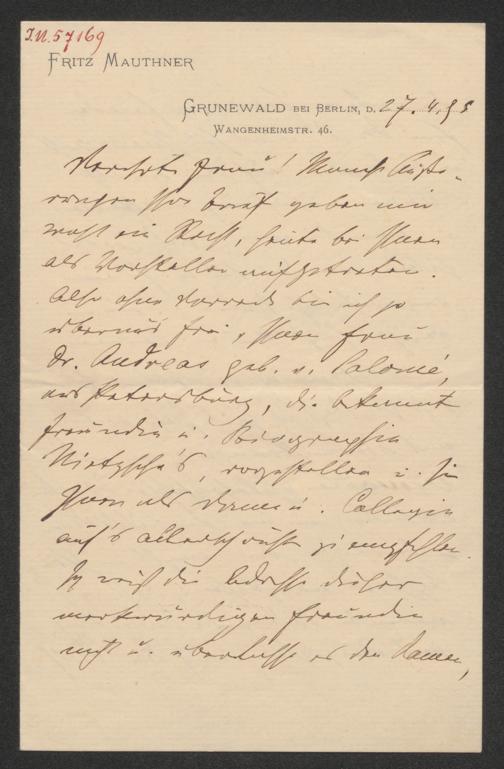 I.N. 57169
FRITZ MAUTHNER
GRUNEWALD BEI BERLIN, D. 27. 4. 95
WANGENHEIMSTR. 46.
Verehrte Frau! Manche Äuße-
rungen Ihres Briefs geben mir
wohl ein Recht, heute bei Ihnen
als Vorsteller aufzutreten.
Also ohne Vorrede bin ich so
überaus frei, Ihnen Frau
Dr. Andreas geb. v. Salomé,
aus Petersburg, die bekannte
Freundin u. Biographin
Nietzsche's, vorzustellen u. sie
Ihnen als Dame u. Collegin
auf's allerschönste zu empfehlen.
Ich weiß die Adresse dieser
merkwürdigen Freundin
nicht u. überlasse es den Damen,